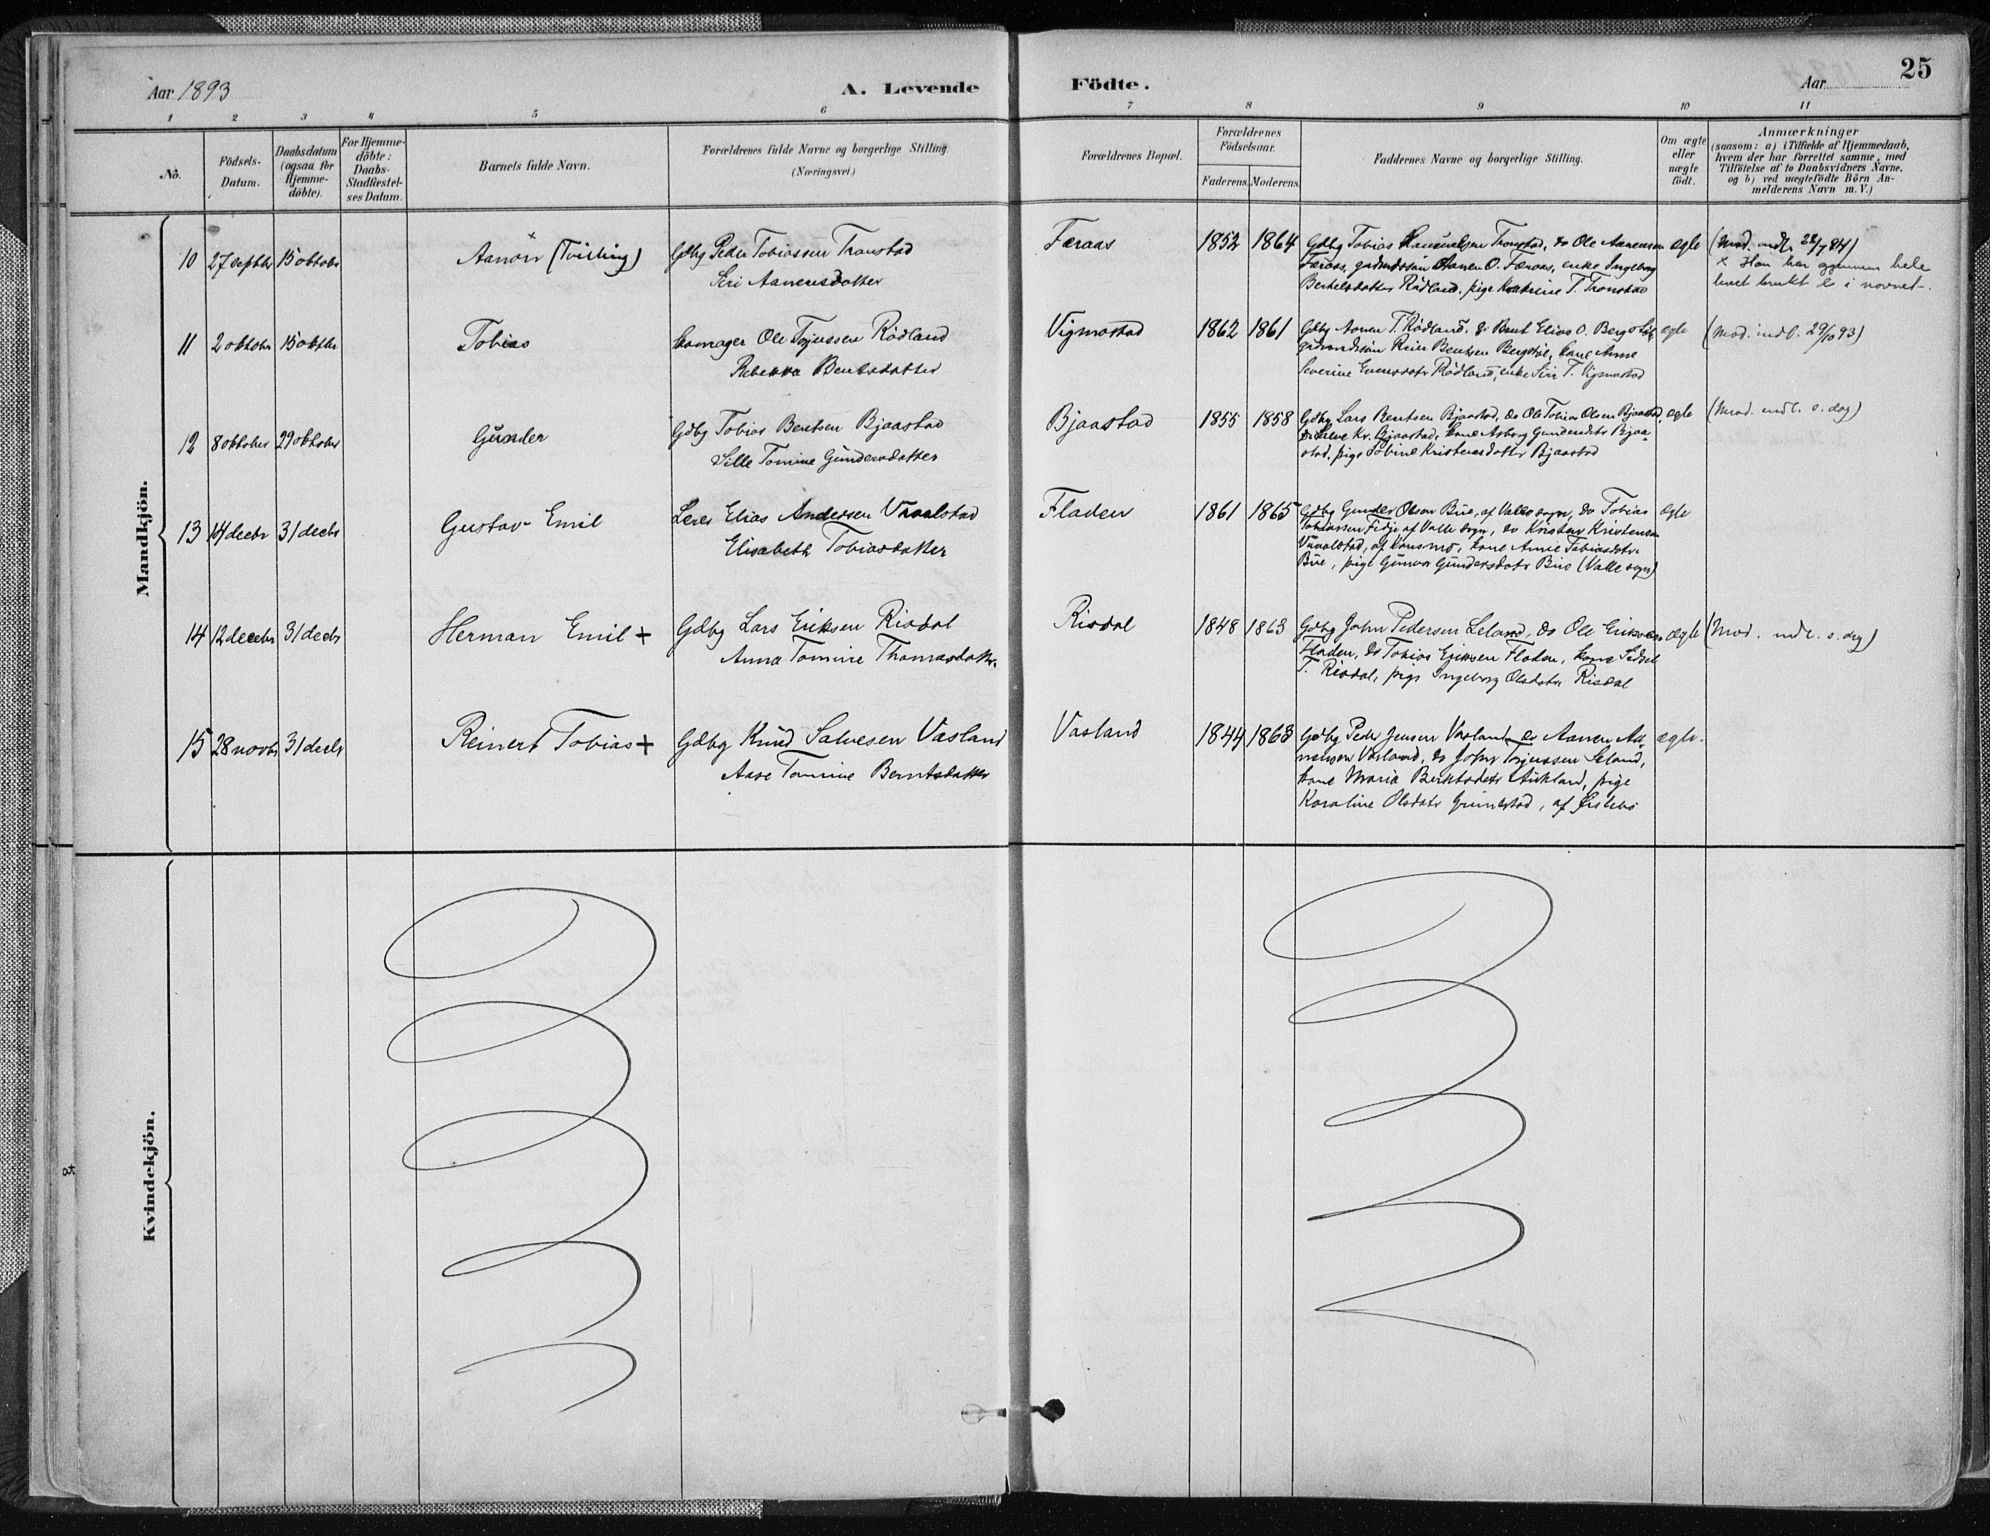 Aar 1893
A. Levende
Födte.
Aar
25
1
2
3
4
5
6
7
8
9
10
11
No.
Födsels-
Datum.
Daabsdatum
(ogsaa for
Hjemme-
döbte).
For Hjemme-
döbte:
Daabs-
Stadfæstel-
ses Datum.
Barnets fulde Navn.
Forældrenes fulde Navne og borgerlige Stilling.
(Næringsvei.)
Forældrenes Bopæl.
Forældrenes
Födselsaar.
Faderens.
Moderens.
Faddernes Navne og borgerlige Stilling.
Om ægte
eller
uægte
födt.
Anmærkninger
(saasom: a) i Tilfælde af Hjemmedaab,
hvem der har forrettet samme, med
Tilföielse af to Daabsvidners Navne,
og b) ved uægtefödte Börn An-
melderens Navn m. V.)
Mandkjön.
10
27 septbr
15 oktober
Aanon (Tvilling)
Gdbg Peder Tobiassen Tronstad
Siri Aanensdatter
Færaas
1852
1864
Gdbg Tobias Tronstad, do Ole Aanensen
Færaas, gårdmdssön Aanen O. Færaas, enke Ingeborg
Bertelsdatter Rödland, pige Katrine T. Tronstad
ægte
(Mod. indl. 22/7 84)
x Han har gjennem hele
livet brukt i navnet.
11
2 oktober
15 oktbr
Tobias
Ole Tarjussen Rödland
Rebekka Bentsdatter
Vigmostad
1862
1861
Gdbg Aanen T. Rödland, do Bent Elias O.
Bentsen Bergstöl, kone Anne
Severine Evensdatr Rödland, enke Siri T. Vigmostad
ægte
(Mod. indl. 29/10 93)
12
8 oktober
29 oktober
Gunder
Gdbg Tobias Bentsen Bjaastad
Sille Tomine Gundersdatter
Bjaastad
1855
1858
Gdbg Lars Bentsen Bjaastad, do Ole Tobias Olsen Bjaastad,
Kr. Bjaastad, kone Asborg Gundersdatr Bjaa-
stad, pige Tobine Kristensdatter Bjaastad
ægte
(Mod. indl. s. dag)
13
14 decbr
31 decbr
Gustav Emil
Elias Andersen Vraalstad
Elisabeth Tobiasdatter
Fladen
1861
1865
Gdbg Gunder Olsen Bue, af Valle sogn, do Tobias
Tobiassen Fidje af Valle sogn, do Kristen Kristensen
Vraalstad, af Konsmo, kone Anne Tobiasdatr
Bue, pige Gunvor Gundersdatr Bue (Valle sogn)
ægte
14
12 decbr
31 decbr
Herman Emil +
Gdbg Lars Eriksen Risdal
Anna Tomine Thomasdatter
Risdal
1848
1863
Gdbg John Pedersen Leland, do Ole Eriksen
Fladen, do Tobias Eriksen Fladen, kone Sidsel
T. Risdal, pige Ingeborg Olsdatr Risdal
ægte
(Mod. indl. s. dag)
15
28 novbr
31 decbr
Reinert Tobias +
Gdbg Knud Salvesen Vasland
Aase Tomine Berntsdatter
Vasland
1844
1863
Gdbg Peder Jensen Vasland, do Aanen Aa-
nensen Vasland, do John Tarjussen Leland,
kone Maria Berntsdatr Aukland, pige
Karoline Olsdatr Grundstad, af Öislebö
ægte.
Kvindekjön.